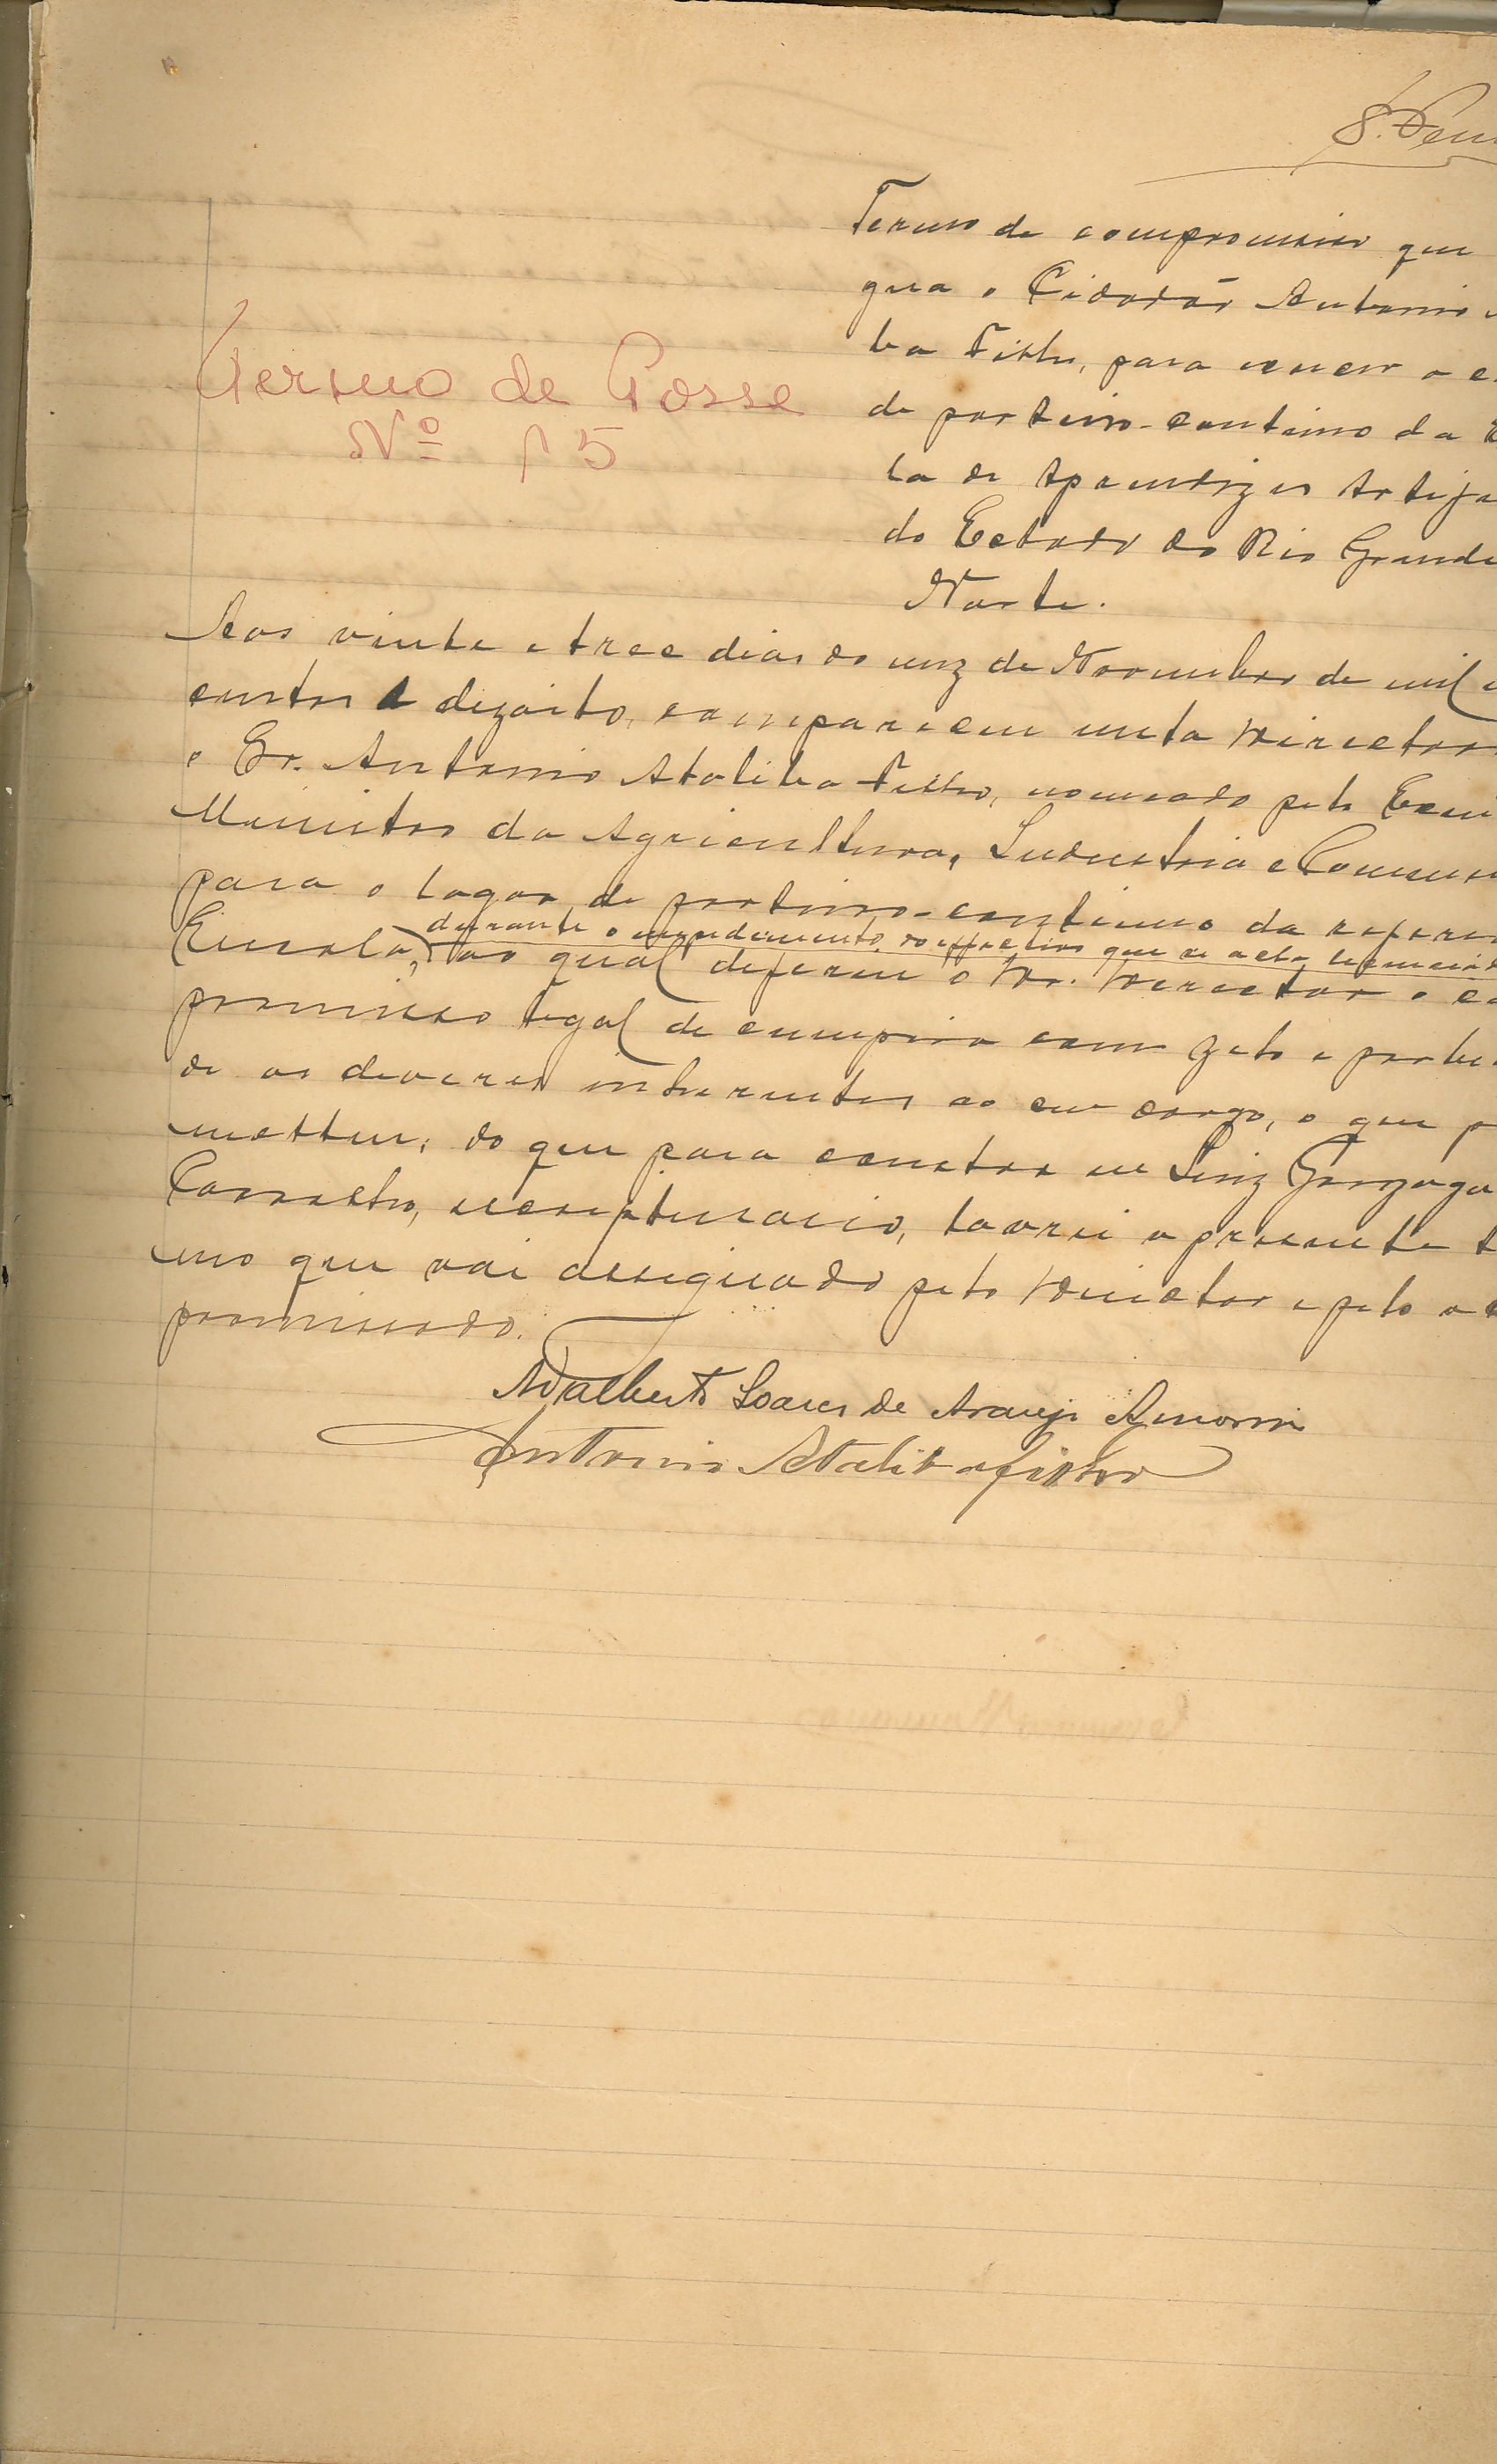 Termo de compromisso que
gna o Cidadão Antonio
ba Filho, para exercer o c
de porteiro-continuo da E
la de Aprendizes Artifi
do Estado do Rio Grande
Norte.
Termo de Posse
Nº 15
Aos vinte e tres dias do mez de Novembro de mil
centos e dezoito, compareceu nesta Director
o Sr. Antonio Ataliba Filho, nomeado pelo Exm
Ministro da Agricultura, Industria e Commer
para o logar de porteiro-continuo da refer
durante o impedimento do effectivo que se acha licenciad
Escola, ao qual deferiu o Dr. Director o co
promisso legal de cumprir com zelo e
de os deveres inherentes ao seu cargo, o que p
metteu; do que para constar eu Luiz Gonzaga
escripturario, lavrei o presente t
mo que vai assignado pelo Director e pelo
promissado.
Adalberto Soares de Araujo Amorim
Antonio Ataliba Filho